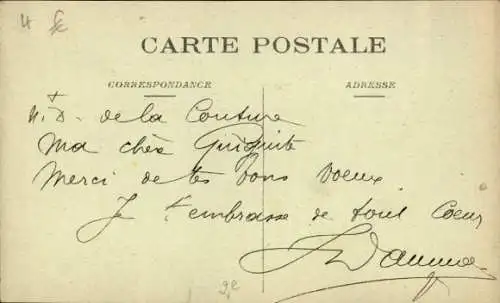 4 £
CARTE POSTALE
CORRESPONDANCE
ADRESSE
N. D. de la Couture
Ma chère Guiguite
Merci de tes bons voeux
Je t'embrasse de tout Coeur
2e